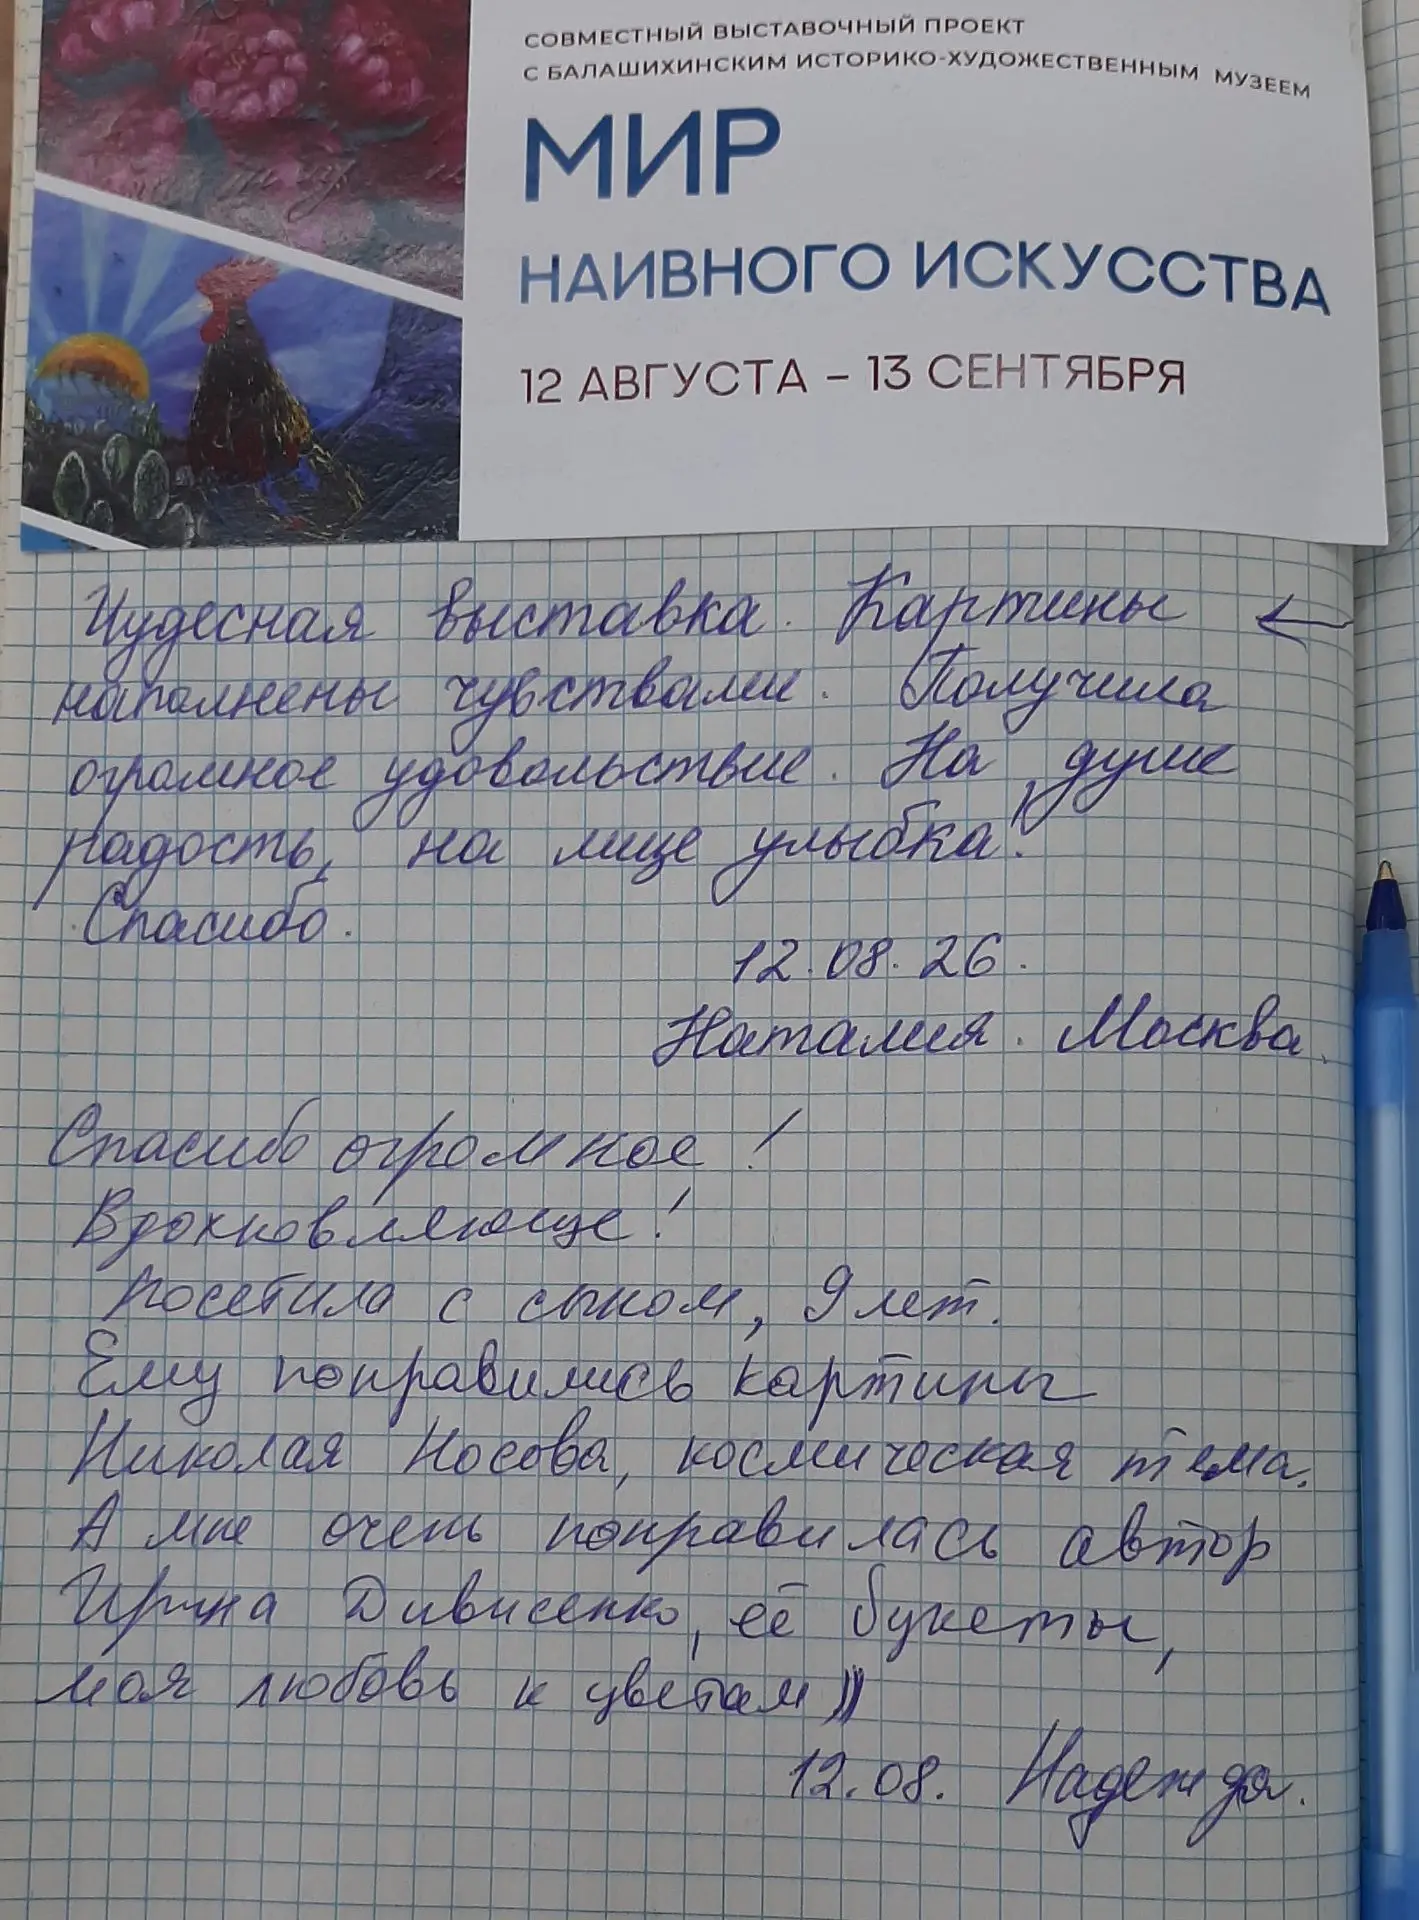 СОВМЕСТНЫЙ ВЫСТАВОЧНЫЙ ПРОЕКТ
С БАЛАШИХИНСКИМ ИСТОРИКО-ХУДОЖЕСТВЕННЫМ МУЗЕЕМ
МИР
НАИВНОГО ИСКУССТВА
12 АВГУСТА – 13 СЕНТЯБРЯ
Чудесная выставка. Картины ←
наполнены чувствами. Получила
огромное удовольствие. На душе
радость, на лице улыбка!
Спасибо.
12.08.26.
Наталия. Москва.
Спасибо огромное!
Вдохновляюще!
Посетила с сыном, 9 лет.
Ему понравились картины
Николая Носова, космическая тема.
А мне очень понравилась автор
Ирина Дивисенко, её букеты,
моя любовь к цветам)))
12.08. Надежда.